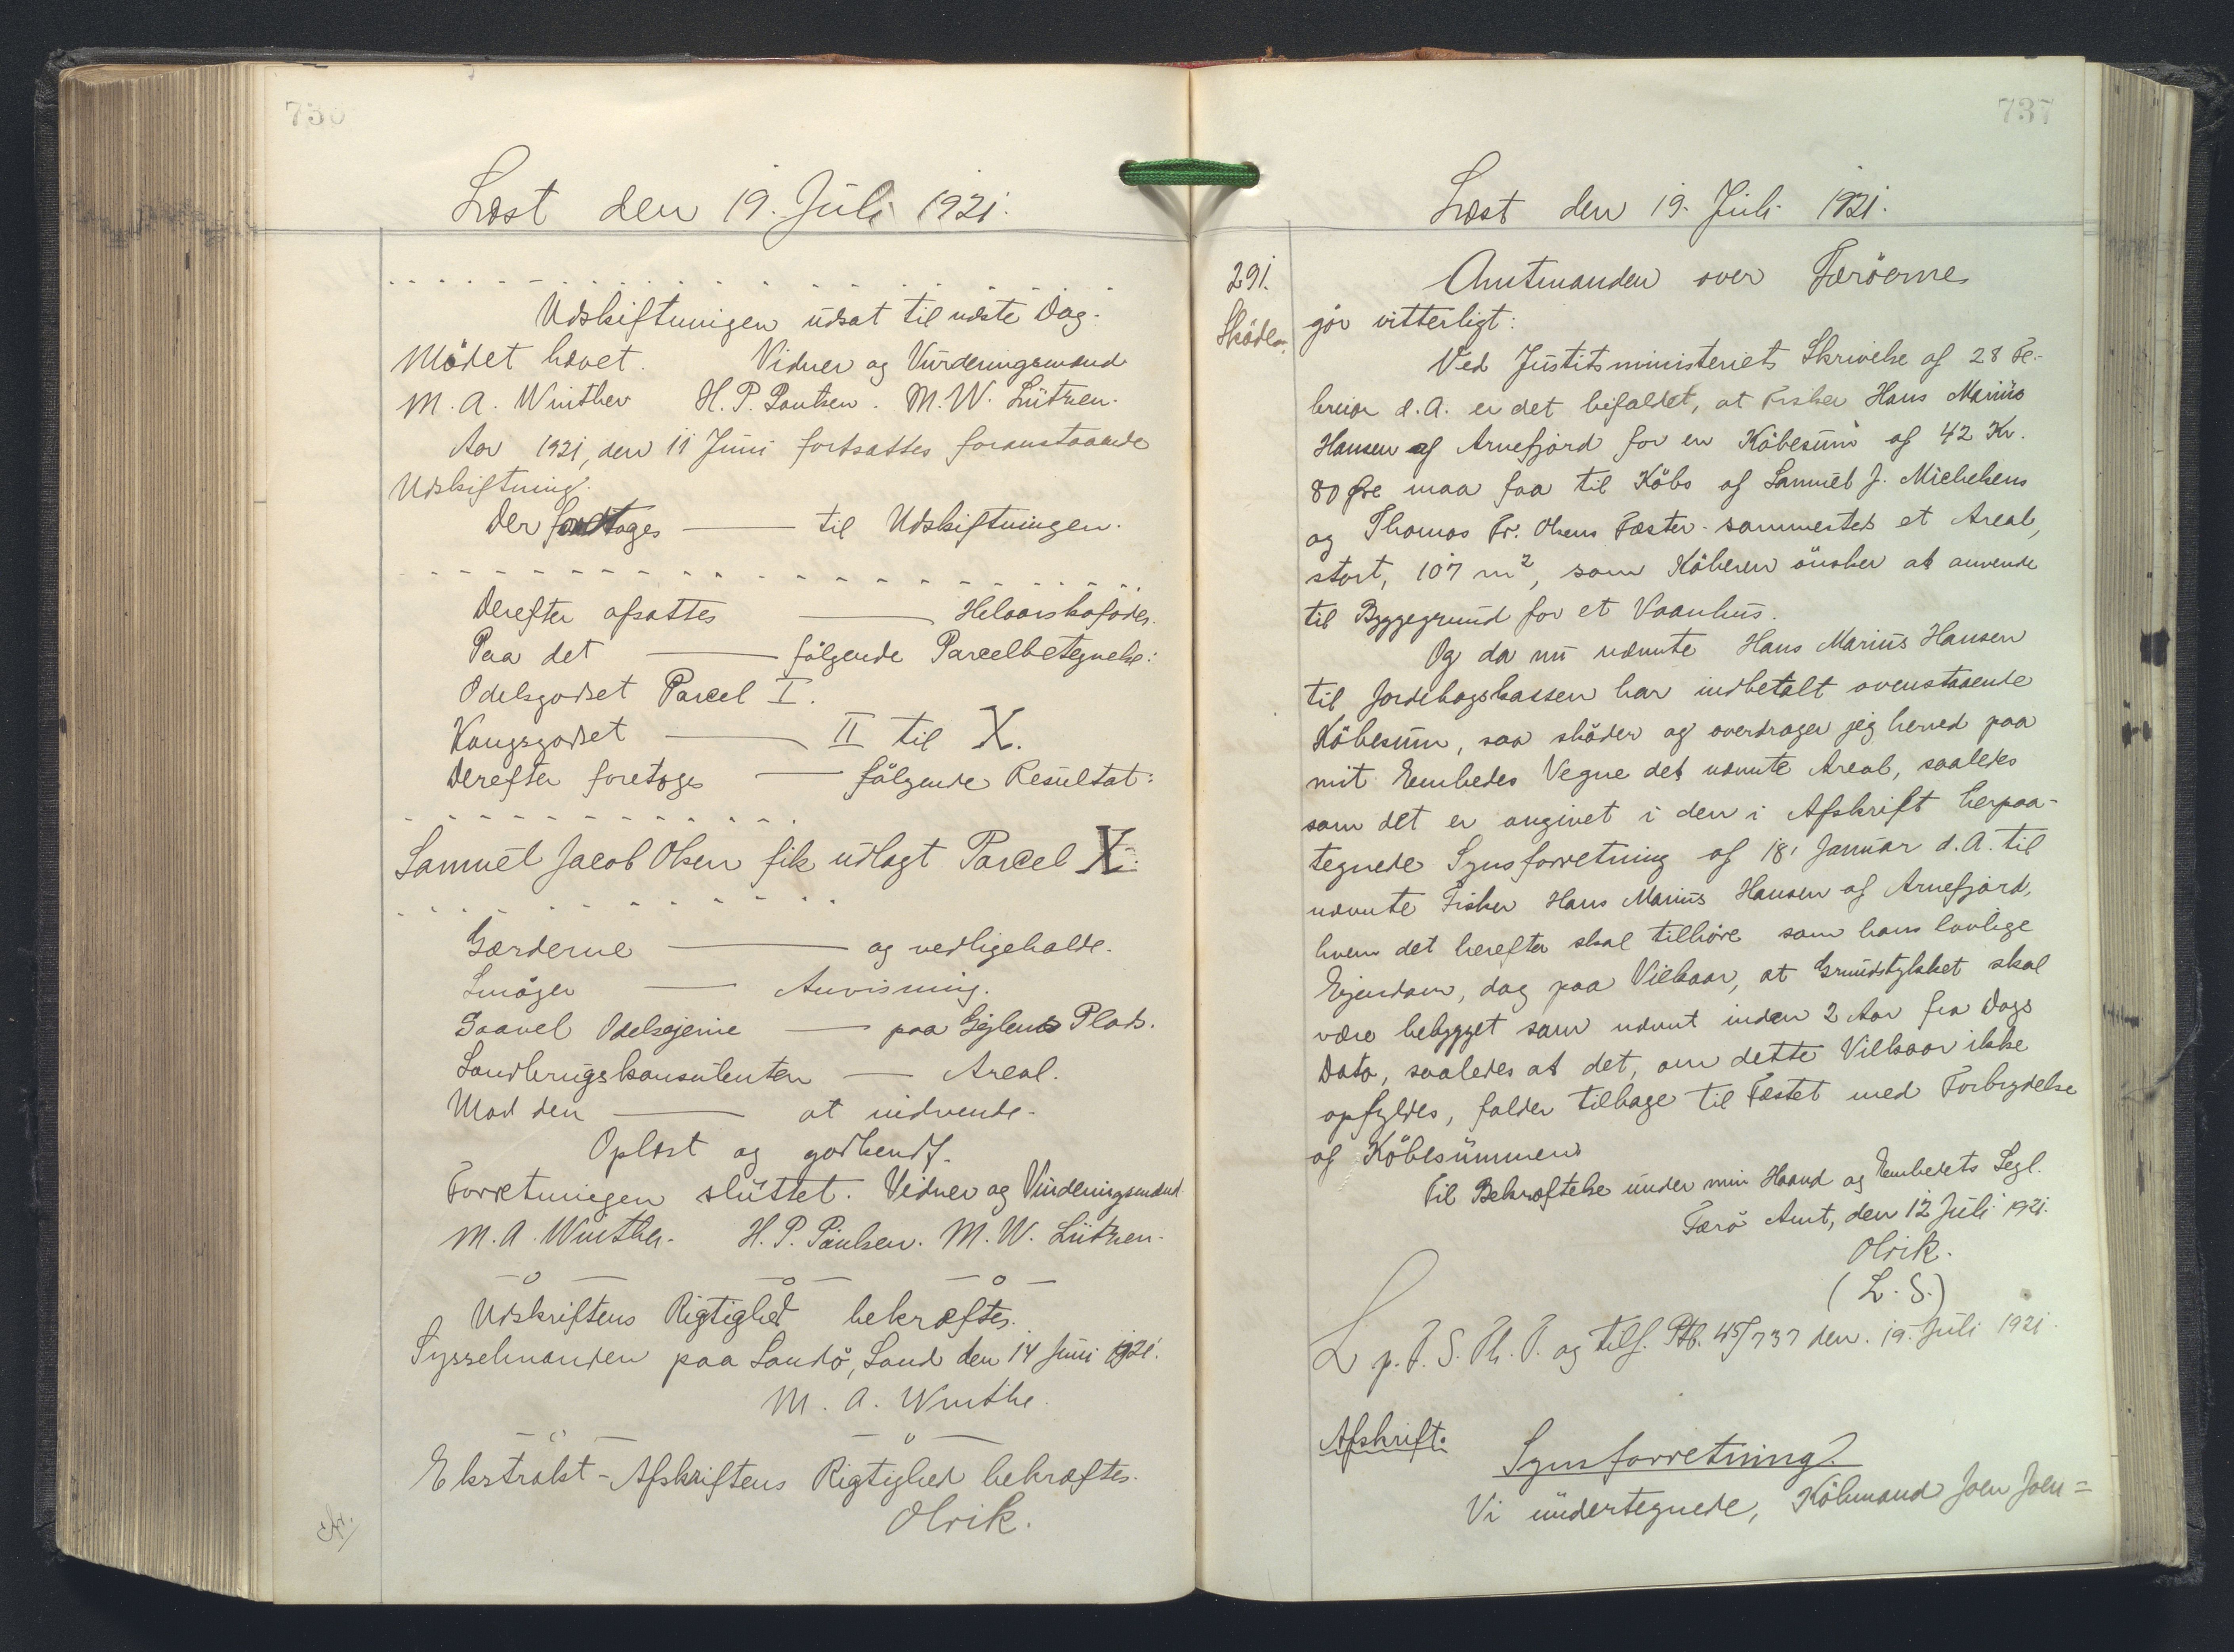 736
Læst den 19. Juli 1921.
Udskiftningen udsat til næste Dag.
Mødet hævet. Vidner og Vurderingsmænd
M. A. Winther H. P. Poulsen. M. W. Lützen.
Aar 1921, den 11 Juni fortsattes foranstaaende
Udskiftning.
Der foretoges — til Udskiftningen.
Derefter afsattes — Helaarskoføder.
Paa det — følgende Parcelbetegnelse:
Odelsgodset Parcel I.
Kongsgodset — II til X.
Derefter foretoges — følgende Resultat:
Samuel Jacob Olsen fik udlagt Parcel X:
Gærderne — og vedligeholde.
Smøger — Anvisning.
Saavel Odelsejerne — paa Gjlens Plads.
Landbrugskonsulenten — Areal.
Mod den — at indvende.
Oplæst og godkendt.
Forretningen sluttet. Vidner og Vurderingsmænd
M. A. Winther. H. P. Poulsen. M. W. Lützen.
— o — — o — — o —
Udskriftens Rigtighed bekræftes.
Sysselmanden paa Sandø, Sand den 14 Juni 1921.
M. A. Winthe.
— o — — o —
Ekstrakt-Afskriftens Rigtighed bekræftes.
Olrik.
737
Læst den 19. Juli 1921.
291.
Skøde.
Amtmanden over Færøerne
gør vitterligt:
Ved Justitsministeriets Skrivelse af 28 Fe-
bruar d.A. er det bifaldet, at Fisker Hans Marius
Hansen af Arnefjord for en Købesum af 42 Kr.
80 Øre maa faa til Købs af Samuel J. Michelsens
og Thomas Fr. Olsens Fæster sammesteds et Areal,
stort, 107 m², som Køberen ønsker at anvende
til Byggegrund for et Vaanhus.
Og da nu nævnte Hans Marius Hansen
til Jordebogskassen har indbetalt ovenstaaende
Købesum, saa skøder og overdrager jeg herved paa
mit Embedes Vegne det nævnte Areal, saaledes
som det er angivet i den i Afskrift herpaa-
tegnede Synsforretning af 18' Januar d.A. til
nævnte Fisker Hans Marius Hansen af Arnefjord,
hvem det herefter skal tilhøre som hans lovlige
Ejendom, dog paa Vilkaar, at Grundstykket skal
være bebygget som nævnt inden 2 Aar fra Dags
Dato, saaledes at det, om dette Vilkaar ikke
opfyldes, falder tilbage til Fæstet med Forbrydelse
af Købesummen
Til Bekræftelse under min Haand og Embedets Segl.
Færø Amt, den 12 Juli 1921.
Olrik.
(L. S.)
L p. F. S. Th. T. og tilf. Ptb. 45/737 den. 19. Juli 1921.
Afskrift.
Synsforretning.
Vi undertegnede, Købmand Joen Joen=